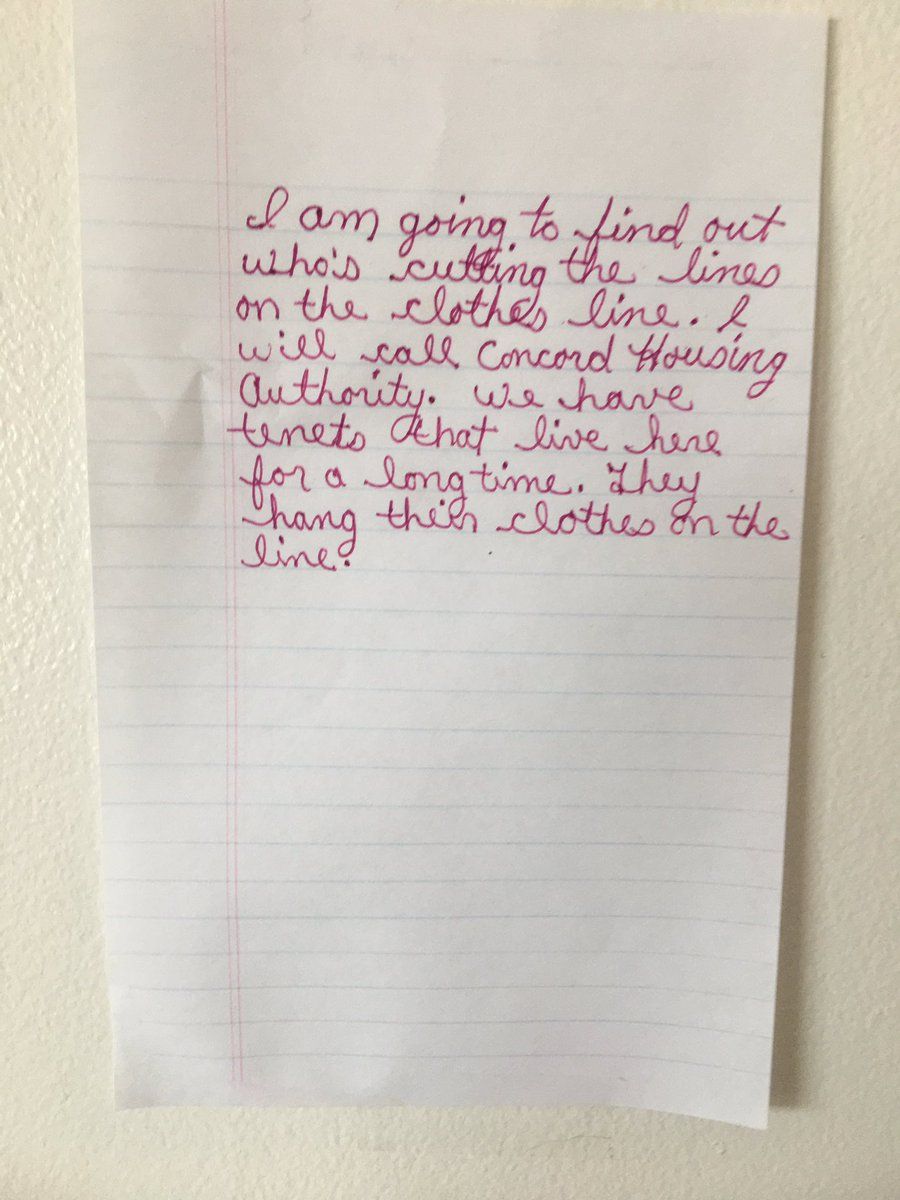 I am going to find out
who's cutting the lines
on the clothes line. I
will call Concord Housing
Authority. We have
tenets that live here
for a long time. They
hang their clothes on the
line.